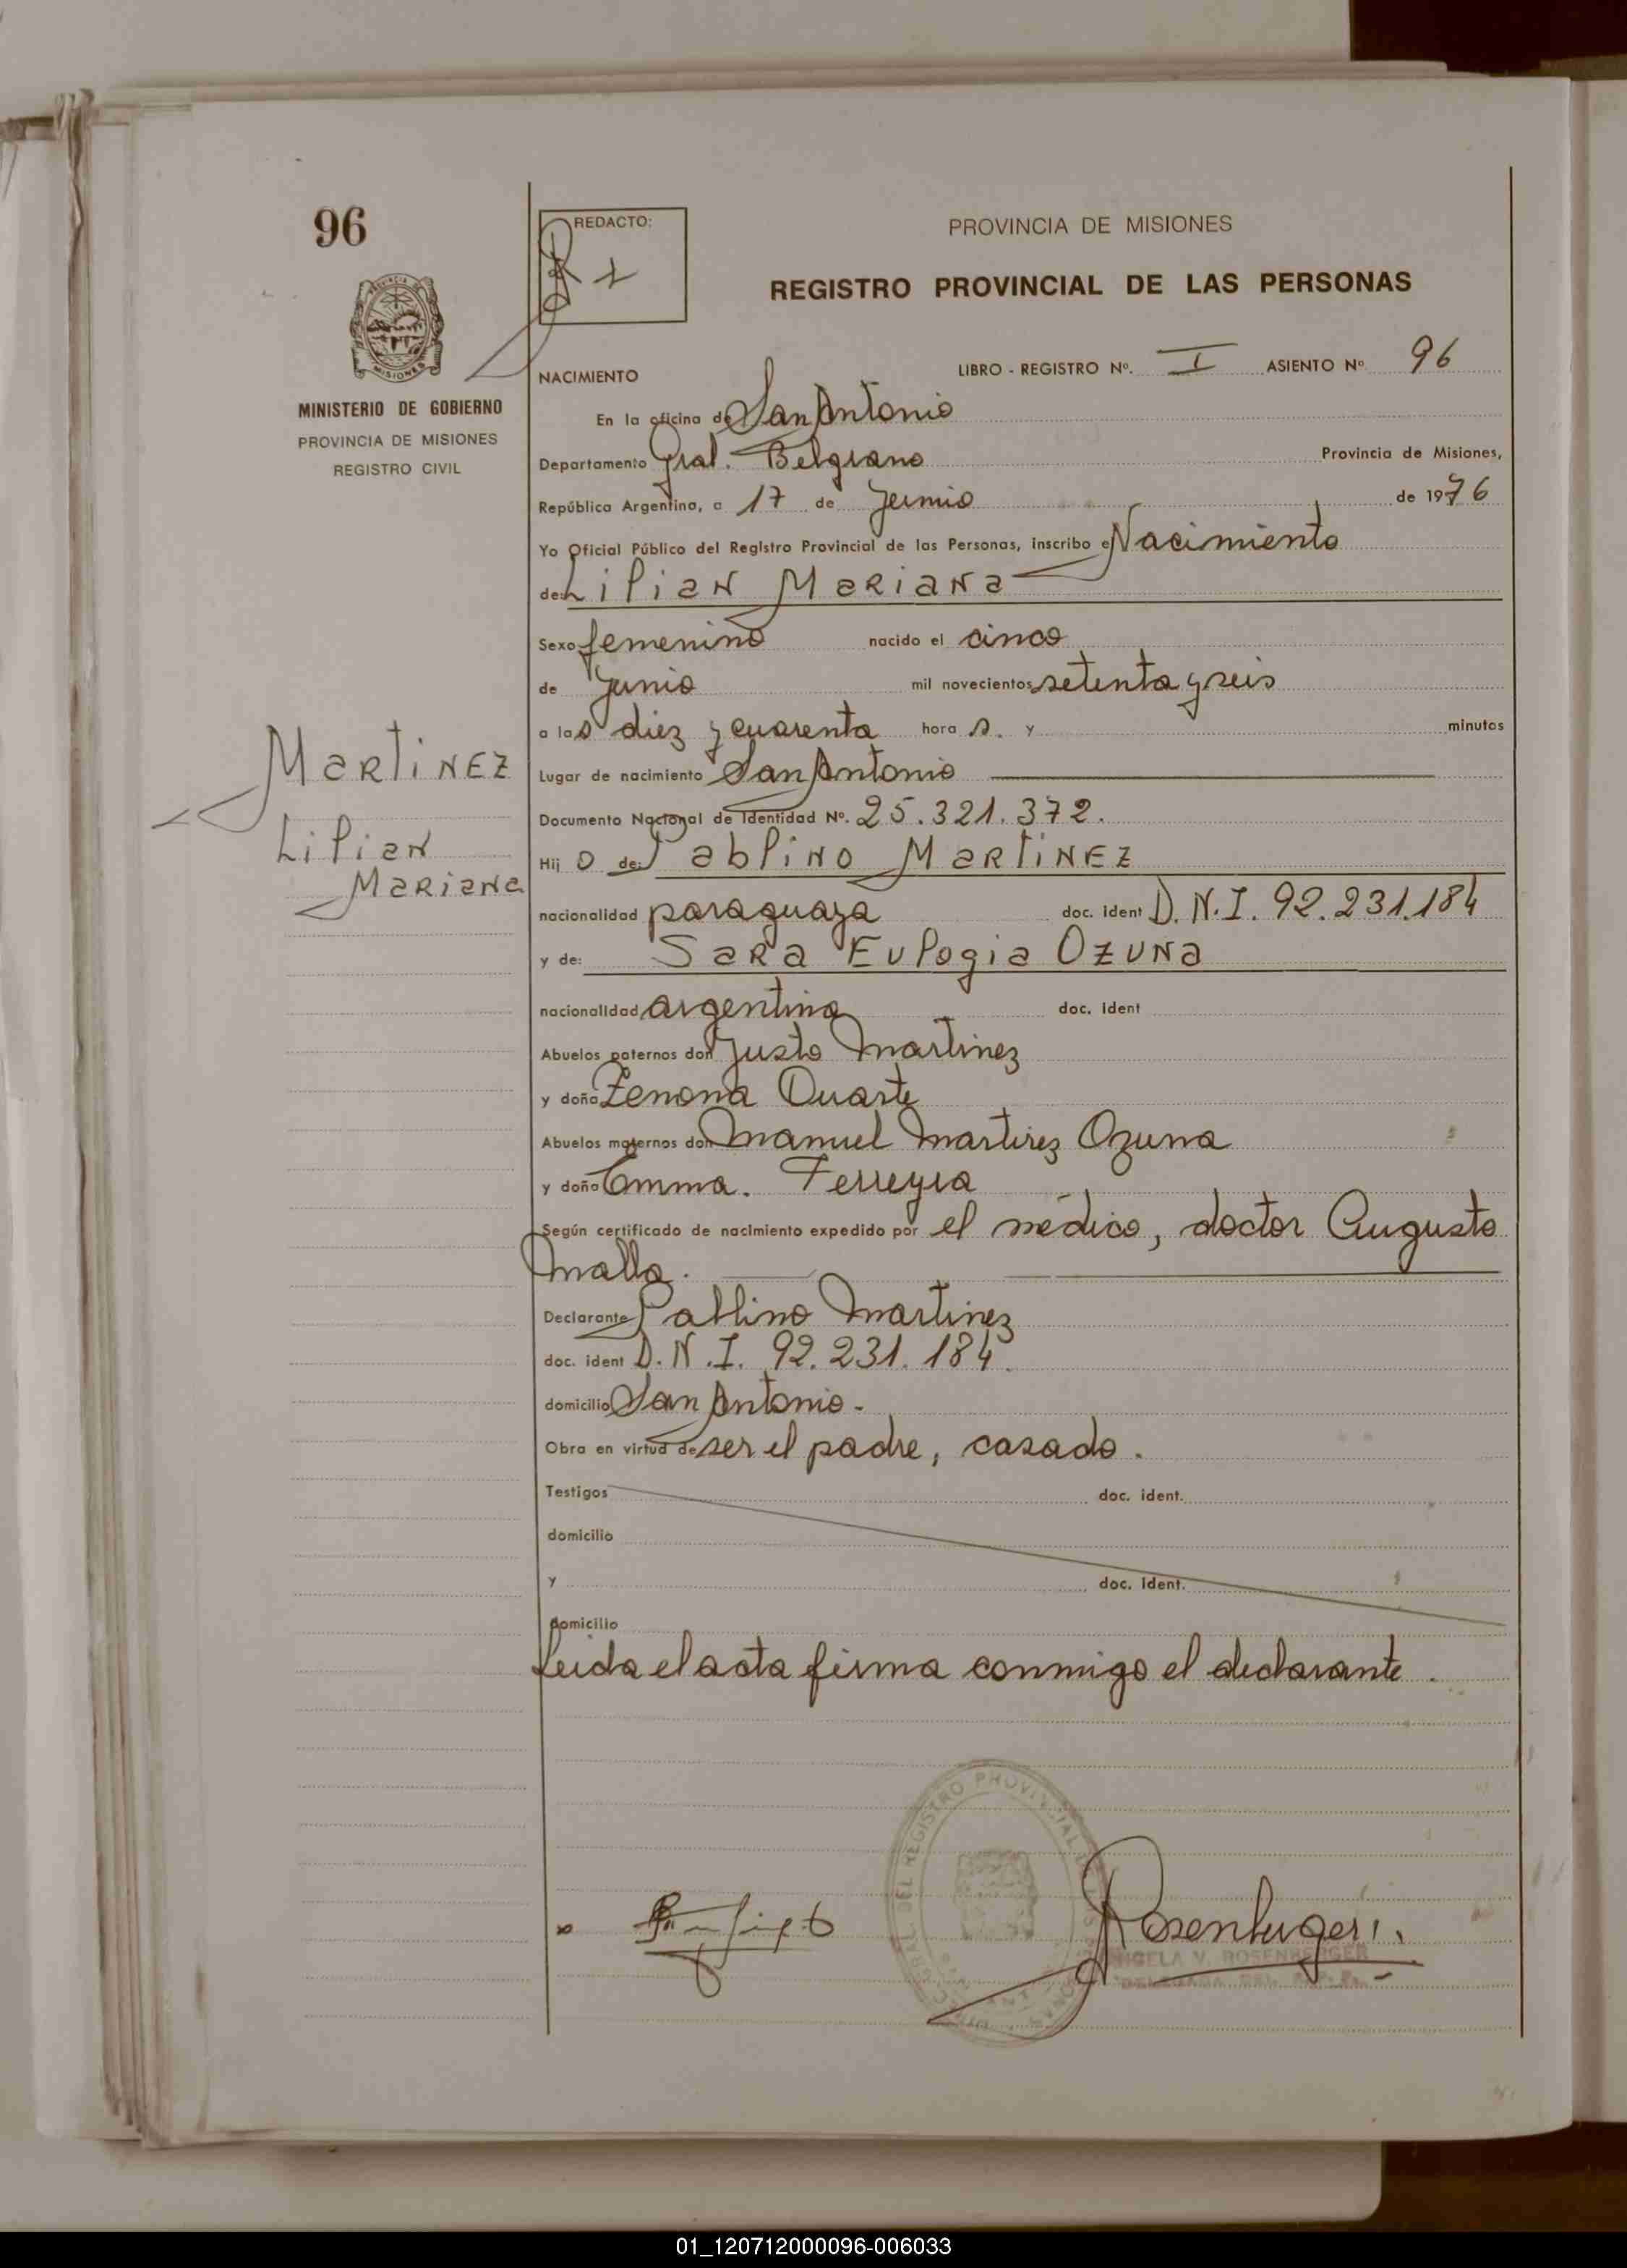 96
REDACTO:
PROVINCIA DE MISIONES
REGISTRO PROVINCIAL DE LAS PERSONAS
MISIONES
MINISTERIO DE GOBIERNO
PROVINCIA DE MISIONES
REGISTRO CIVIL
NACIMIENTO LIBRO - REGISTRO Nº. I ASIENTO Nº 96
En la oficina de San Antonio
Departamento Gral. Belgrano Provincia de Misiones,
República Argentina, a 17 de Junio de 1976
Yo Oficial Público del Registro Provincial de las Personas, inscribo e Nacimiento
de: Lilian Mariana
Sexo femenino nacido el cinco
de Junio mil novecientos setenta y seis
a las diez y cuarenta hora s. y minutos
Lugar de nacimiento San Antonio
Documento Nacional de Identidad Nº. 25.321.372.
Martinez
Lilian
Mariana
Hij o de: Pablino Martinez
nacionalidad paraguaya doc. ident D.N.I. 92.231.184
y de: Sara Eulogia Ozuna
nacionalidad argentina doc. ident
Abuelos paternos don Justo Martinez
y doña Zenona Duarte
Abuelos maternos don Manuel Martirez Ozuna
y doña Emma. Ferreyra
Según certificado de nacimiento expedido por el médico, doctor Augusto
Malla.
Declarante Pablino Martinez
doc. ident D.N.I. 92.231.184.
domicilio San Antonio.
Obra en virtud de ser el padre, casado.
Testigos doc. ident.
domicilio
y doc. ident.
domicilio
Leida el acta firma conmigo el declarante.
DEL REGISTRO PROVINCIAL
Rosenberger
ANGELA V. ROSENBERGER
DELEGADA DEL R. P. P.
01_120712000096-006033